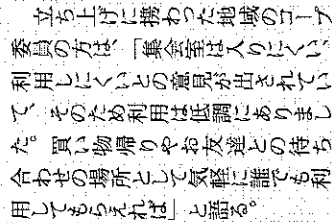 立ち上げに携わった地域のコープ
委員の方は、「集会室は入りにくい、
利用しにくいとの意見が出されてい
て、そのため利用は低調にありまし
た。買い物帰りやお友達との待ち
合わせの場所として気軽に誰でも利
用してもらえれば」と語る。